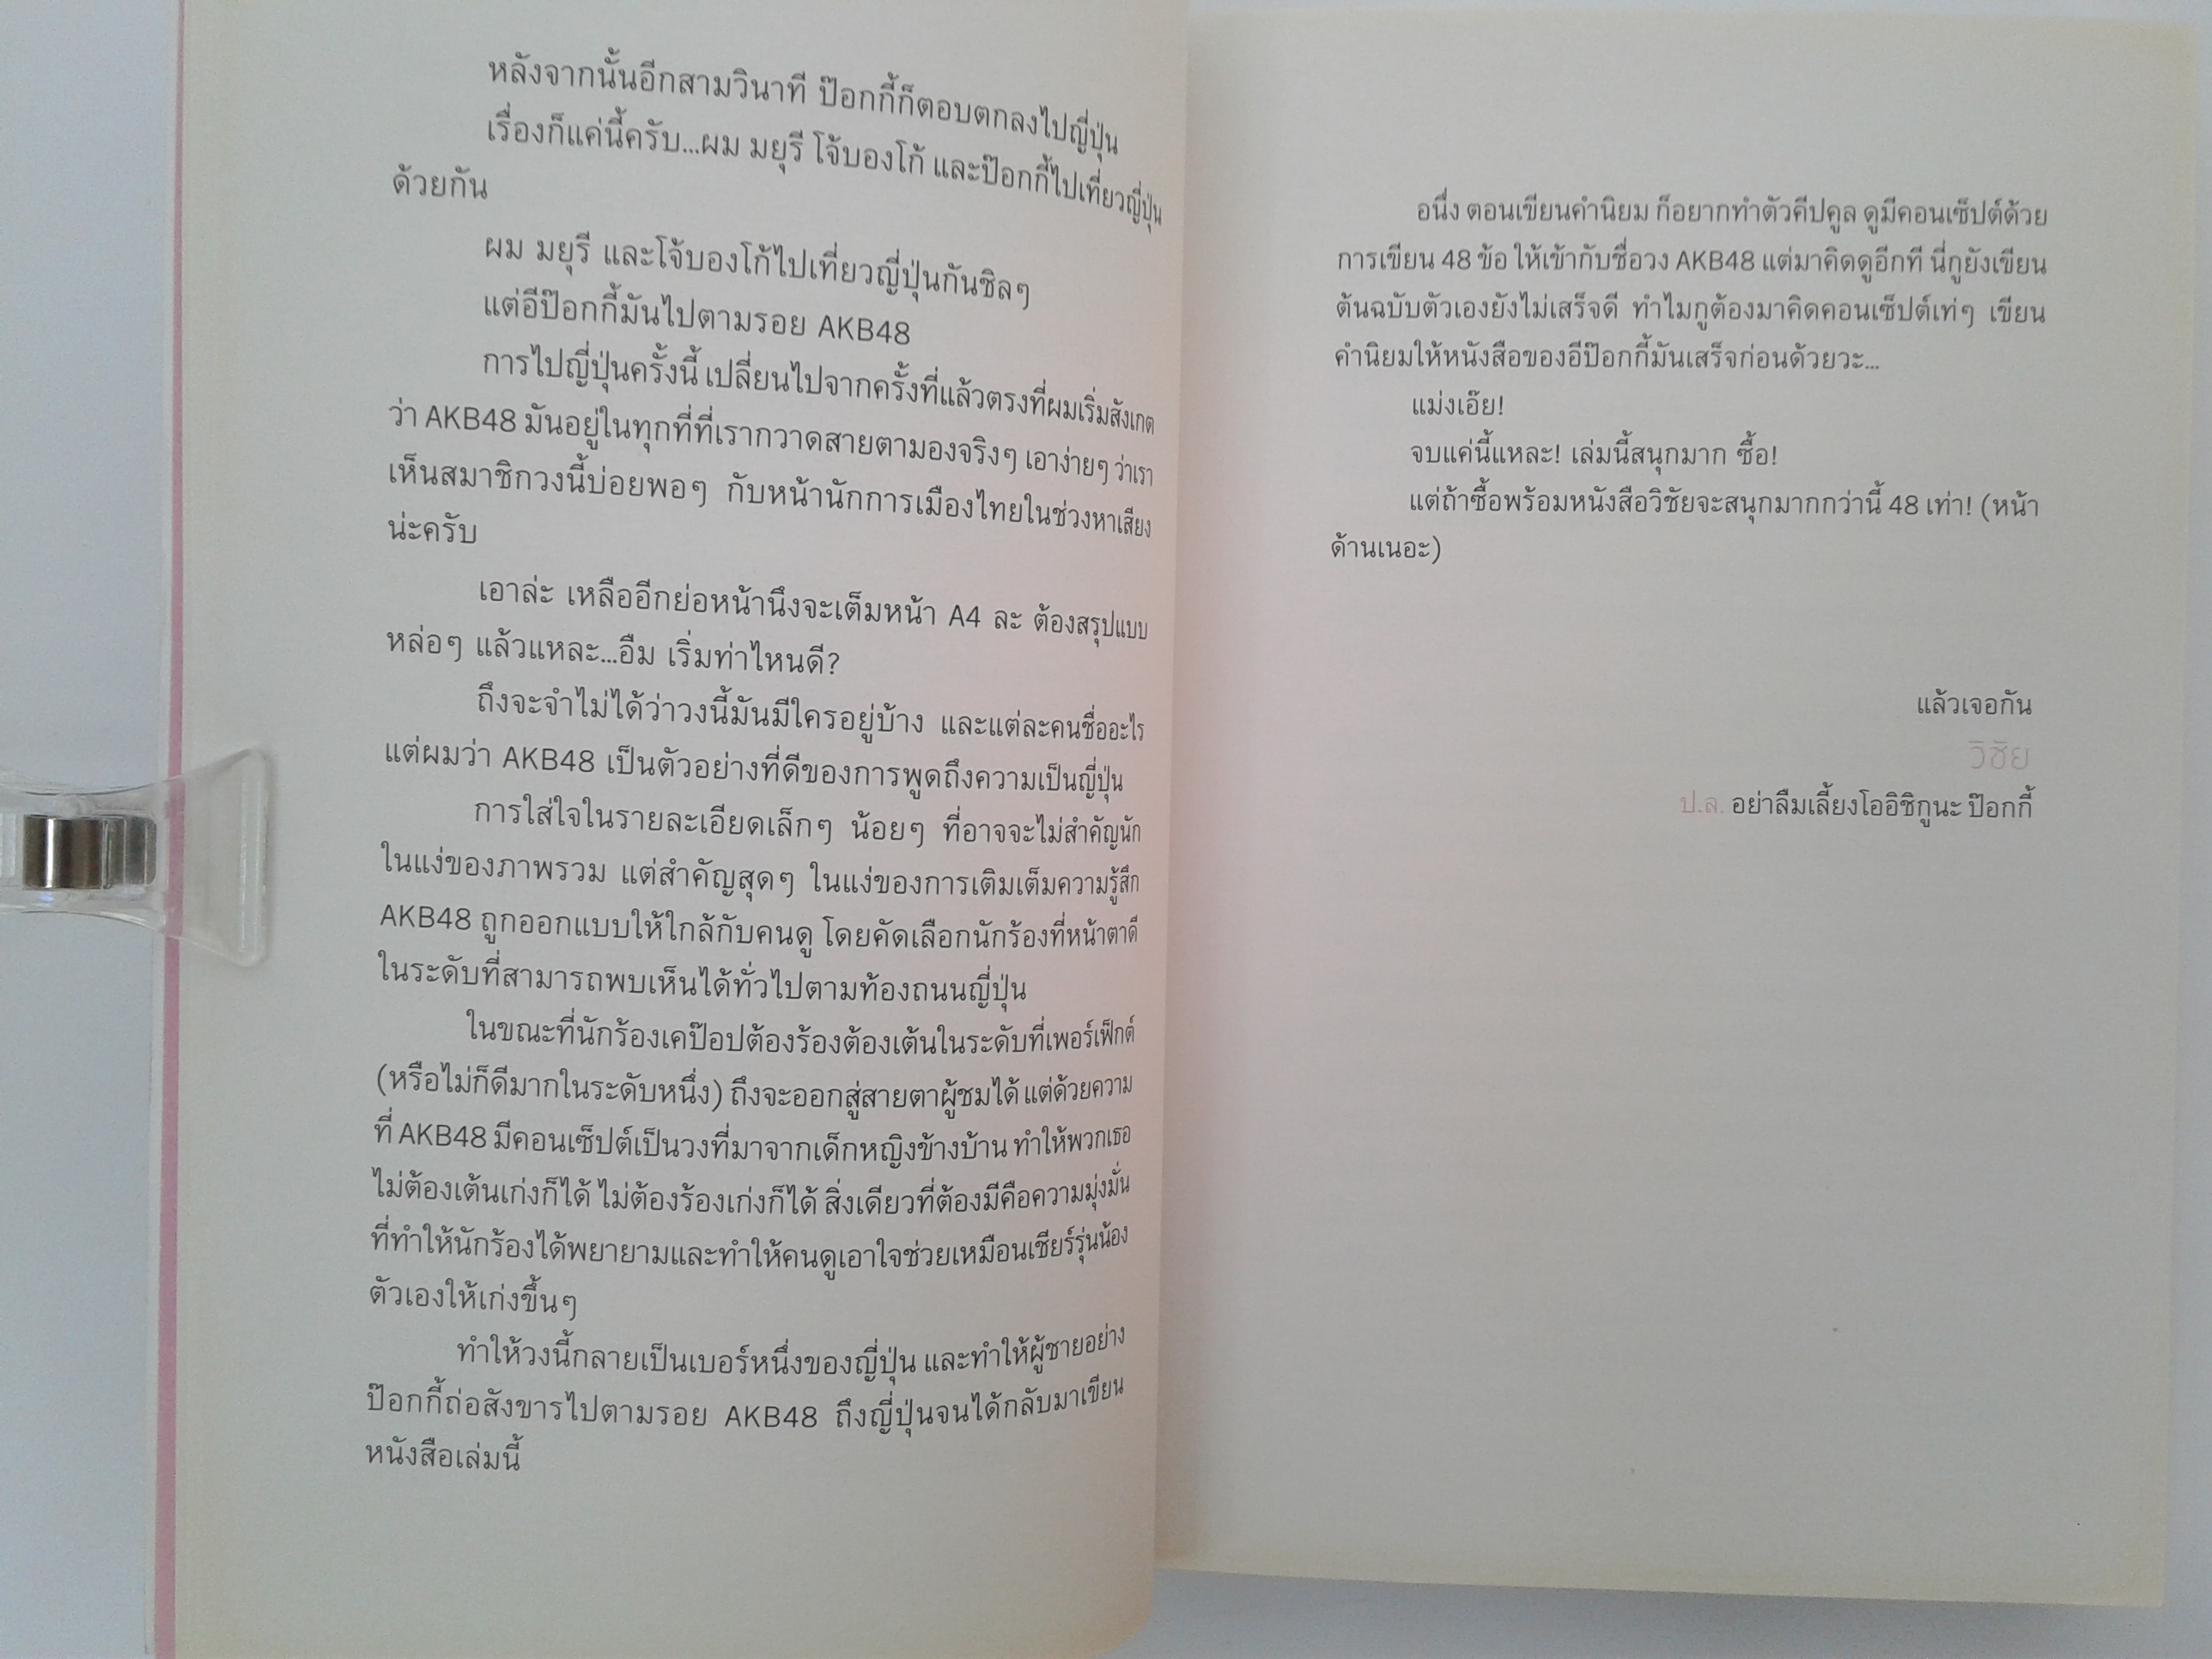 หลังจากนั้นอีกสามวินาที ป๊อกกี้ก็ตอบตกลงไปญี่ปุ่น
เรื่องก็แค่นี้ครับ...ผม มยุรี โจ้บองโก้ และป๊อกกี้ไปเที่ยวญี่ปุ่น
ด้วยกัน
ผม มยุรี และโจ้บองโก้ไปเที่ยวญี่ปุ่นกันชิลๆ
แต่อีป๊อกกี้มันไปตามรอย AKB48
การไปญี่ปุ่นครั้งนี้ เปลี่ยนไปจากครั้งที่แล้วตรงที่ผมเริ่มสังเกต
ว่า AKB48 มันอยู่ในทุกที่ที่เรากวาดสายตามองจริงๆ เอาง่ายๆ ว่าเรา
เห็นสมาชิกวงนี้บ่อยพอๆ กับหน้านักการเมืองไทยในช่วงหาเสียง
น่ะครับ
เอาล่ะ เหลืออีกย่อหน้านึงจะเต็มหน้า A4 ละ ต้องสรุปแบบ
หล่อๆ แล้วแหละ...อืม เริ่มท่าไหนดี?
ถึงจะจำไม่ได้ว่าวงนี้มันมีใครอยู่บ้าง และแต่ละคนชื่ออะไร
แต่ผมว่า AKB48 เป็นตัวอย่างที่ดีของการพูดถึงความเป็นญี่ปุ่น
การใส่ใจในรายละเอียดเล็กๆ น้อยๆ ที่อาจจะไม่สำคัญนัก
ในแง่ของภาพรวม แต่สำคัญสุดๆ ในแง่ของการเติมเต็มความรู้สึก
AKB48 ถูกออกแบบให้ใกล้กับคนดู โดยคัดเลือกนักร้องที่หน้าตาดี
ในระดับที่สามารถพบเห็นได้ทั่วไปตามท้องถนนญี่ปุ่น
ในขณะที่นักร้องเคป๊อปต้องร้องต้องเต้นในระดับที่เพอร์เฟ็กต์
(หรือไม่ก็ดีมากในระดับหนึ่ง) ถึงจะออกสู่สายตาผู้ชมได้ แต่ด้วยความ
ที่ AKB48 มีคอนเซ็ปต์เป็นวงที่มาจากเด็กหญิงข้างบ้าน ทำให้พวกเธอ
ไม่ต้องเต้นเก่งก็ได้ ไม่ต้องร้องเก่งก็ได้ สิ่งเดียวที่ต้องมีคือความมุ่งมั่น
ที่ทำให้นักร้องได้พยายามและทำให้คนดูเอาใจช่วยเหมือนเชียร์รุ่นน้อง
ตัวเองให้เก่งขึ้นๆ
ทำให้วงนี้กลายเป็นเบอร์หนึ่งของญี่ปุ่น และทำให้ผู้ชายอย่าง
ป๊อกกี้ถ่อสังขารไปตามรอย AKB48 ถึงญี่ปุ่นจนได้กลับมาเขียน
หนังสือเล่มนี้
อนึ่ง ตอนเขียนคำนิยม ก็อยากทำตัวคีปคูล ดูมีคอนเซ็ปต์ด้วย
การเขียน 48 ข้อ ให้เข้ากับชื่อวง AKB48 แต่มาคิดดูอีกที นี่กูยังเขียน
ต้นฉบับตัวเองยังไม่เสร็จดี ทำไมกูต้องมาคิดคอนเซ็ปต์เท่ๆ เขียน
คำนิยมให้หนังสือของอีป๊อกกี้มันเสร็จก่อนด้วยวะ...
แม่งเอ๊ย!
จบแค่นี้แหละ! เล่มนี้สนุกมาก ซื้อ!
แต่ถ้าซื้อพร้อมหนังสือวิชัยจะสนุกมากกว่านี้ 48 เท่า! (หน้า
ด้านเนอะ)
แล้วเจอกัน
วิชัย
ป.ล. อย่าลืมเลี้ยงโออิชิกูนะ ป๊อกกี้